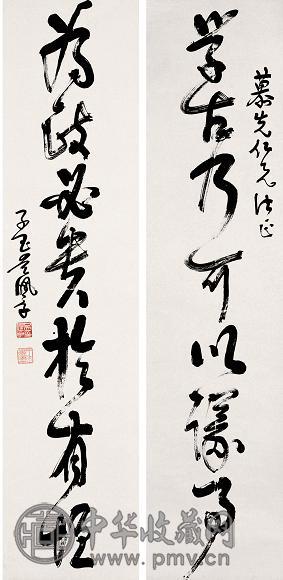 慕先仁兄法正
學古乃可以議事
為政必貴於有恒
子玉吳佩孚
中华收藏网
www.pmv.cn